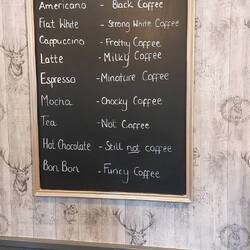 Americano - Black Coffee
Flat White - Strong White Coffee
Cappuccino - Frothy Coffee
Latte - Milky Coffee
Espresso - Minature Coffee
Mocha - Chocky Coffee
Tea - Not Coffee
Hot Chocolate - Still not coffee
Bon Bon - Funcy Coffee